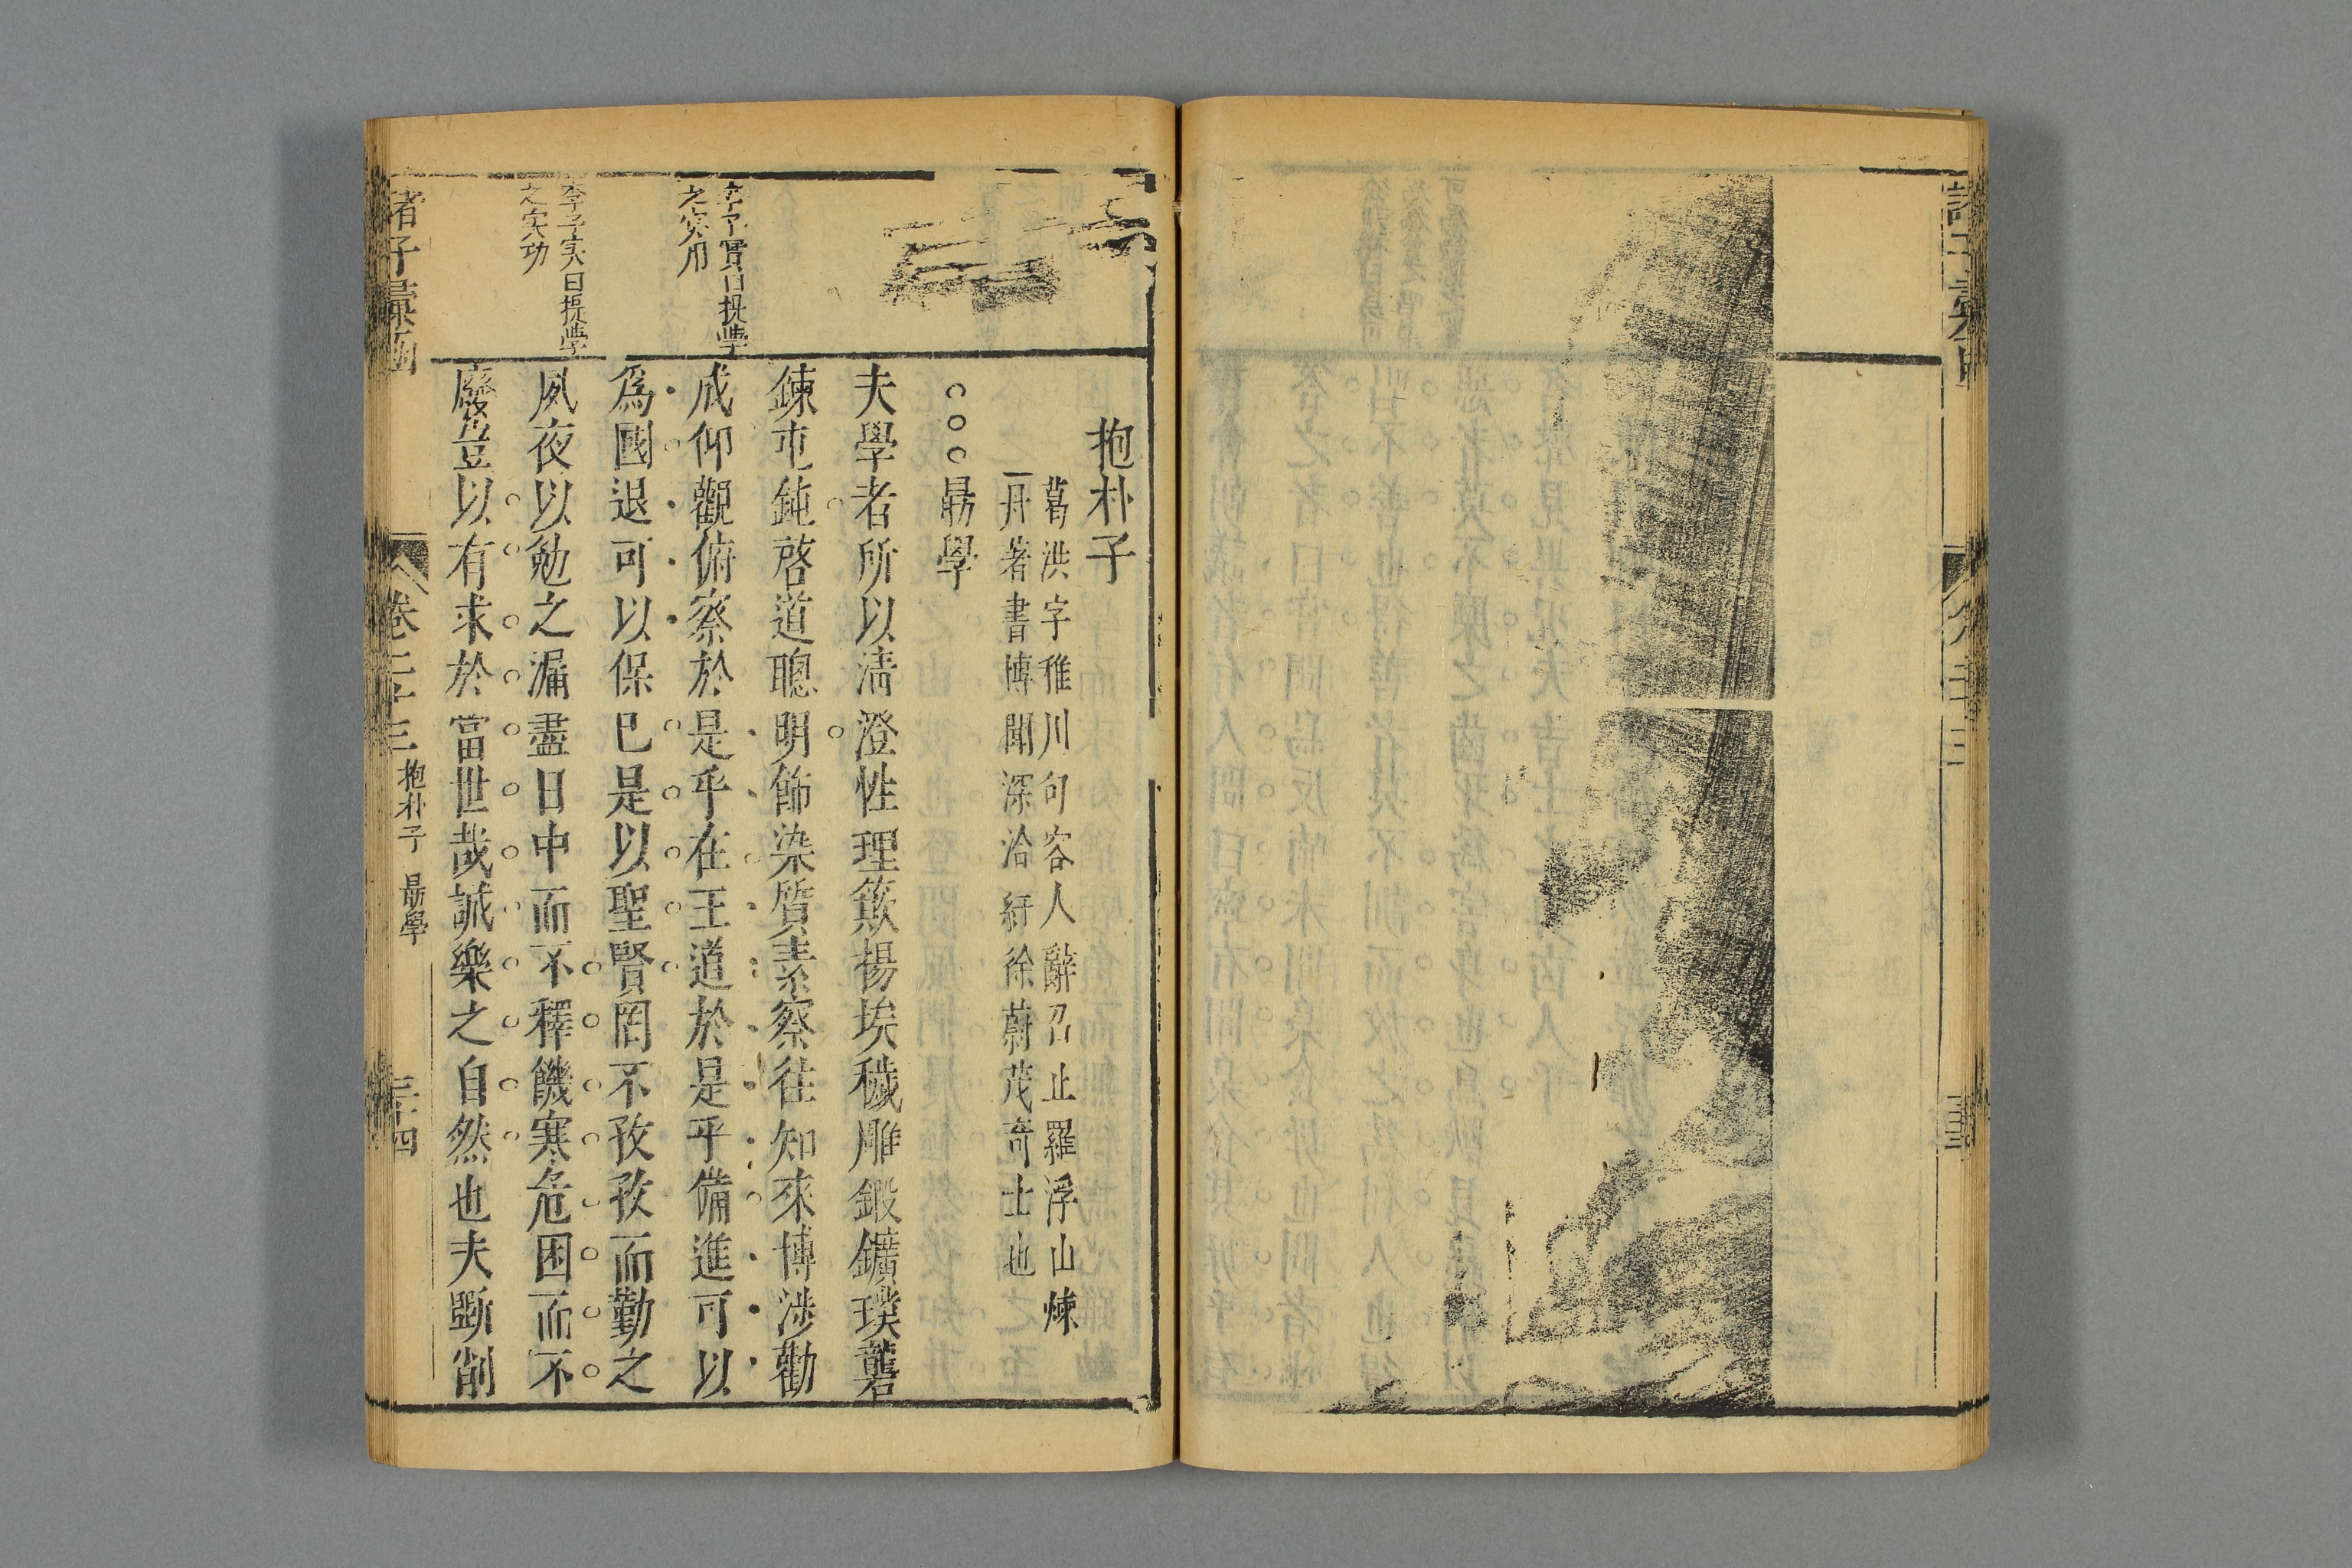 抱朴子
葛洪字稚川句容人辭召止羅浮山煉
丹著書博聞深洽紆徐蔚茂奇士也
勗學
夫學者所以淸澄性理簸揚埃穢雕鍛鑛璞礱
鍊屯鈍啓道聰明飾染質素察往知來博涉勸
成仰觀俯察於是乎在王道於是乎備進可以
爲國退可以保已是以聖賢罔不孜孜而勤之
夙夜以勉之漏盡日中而不釋饑寒危困而不
廢豈以有求於當世哉誠樂之自然也夫斲削
李子實曰提學
之實用
李子实曰提學
之实功
諸子彙函
卷二十三
抱朴子
勗學
三十四